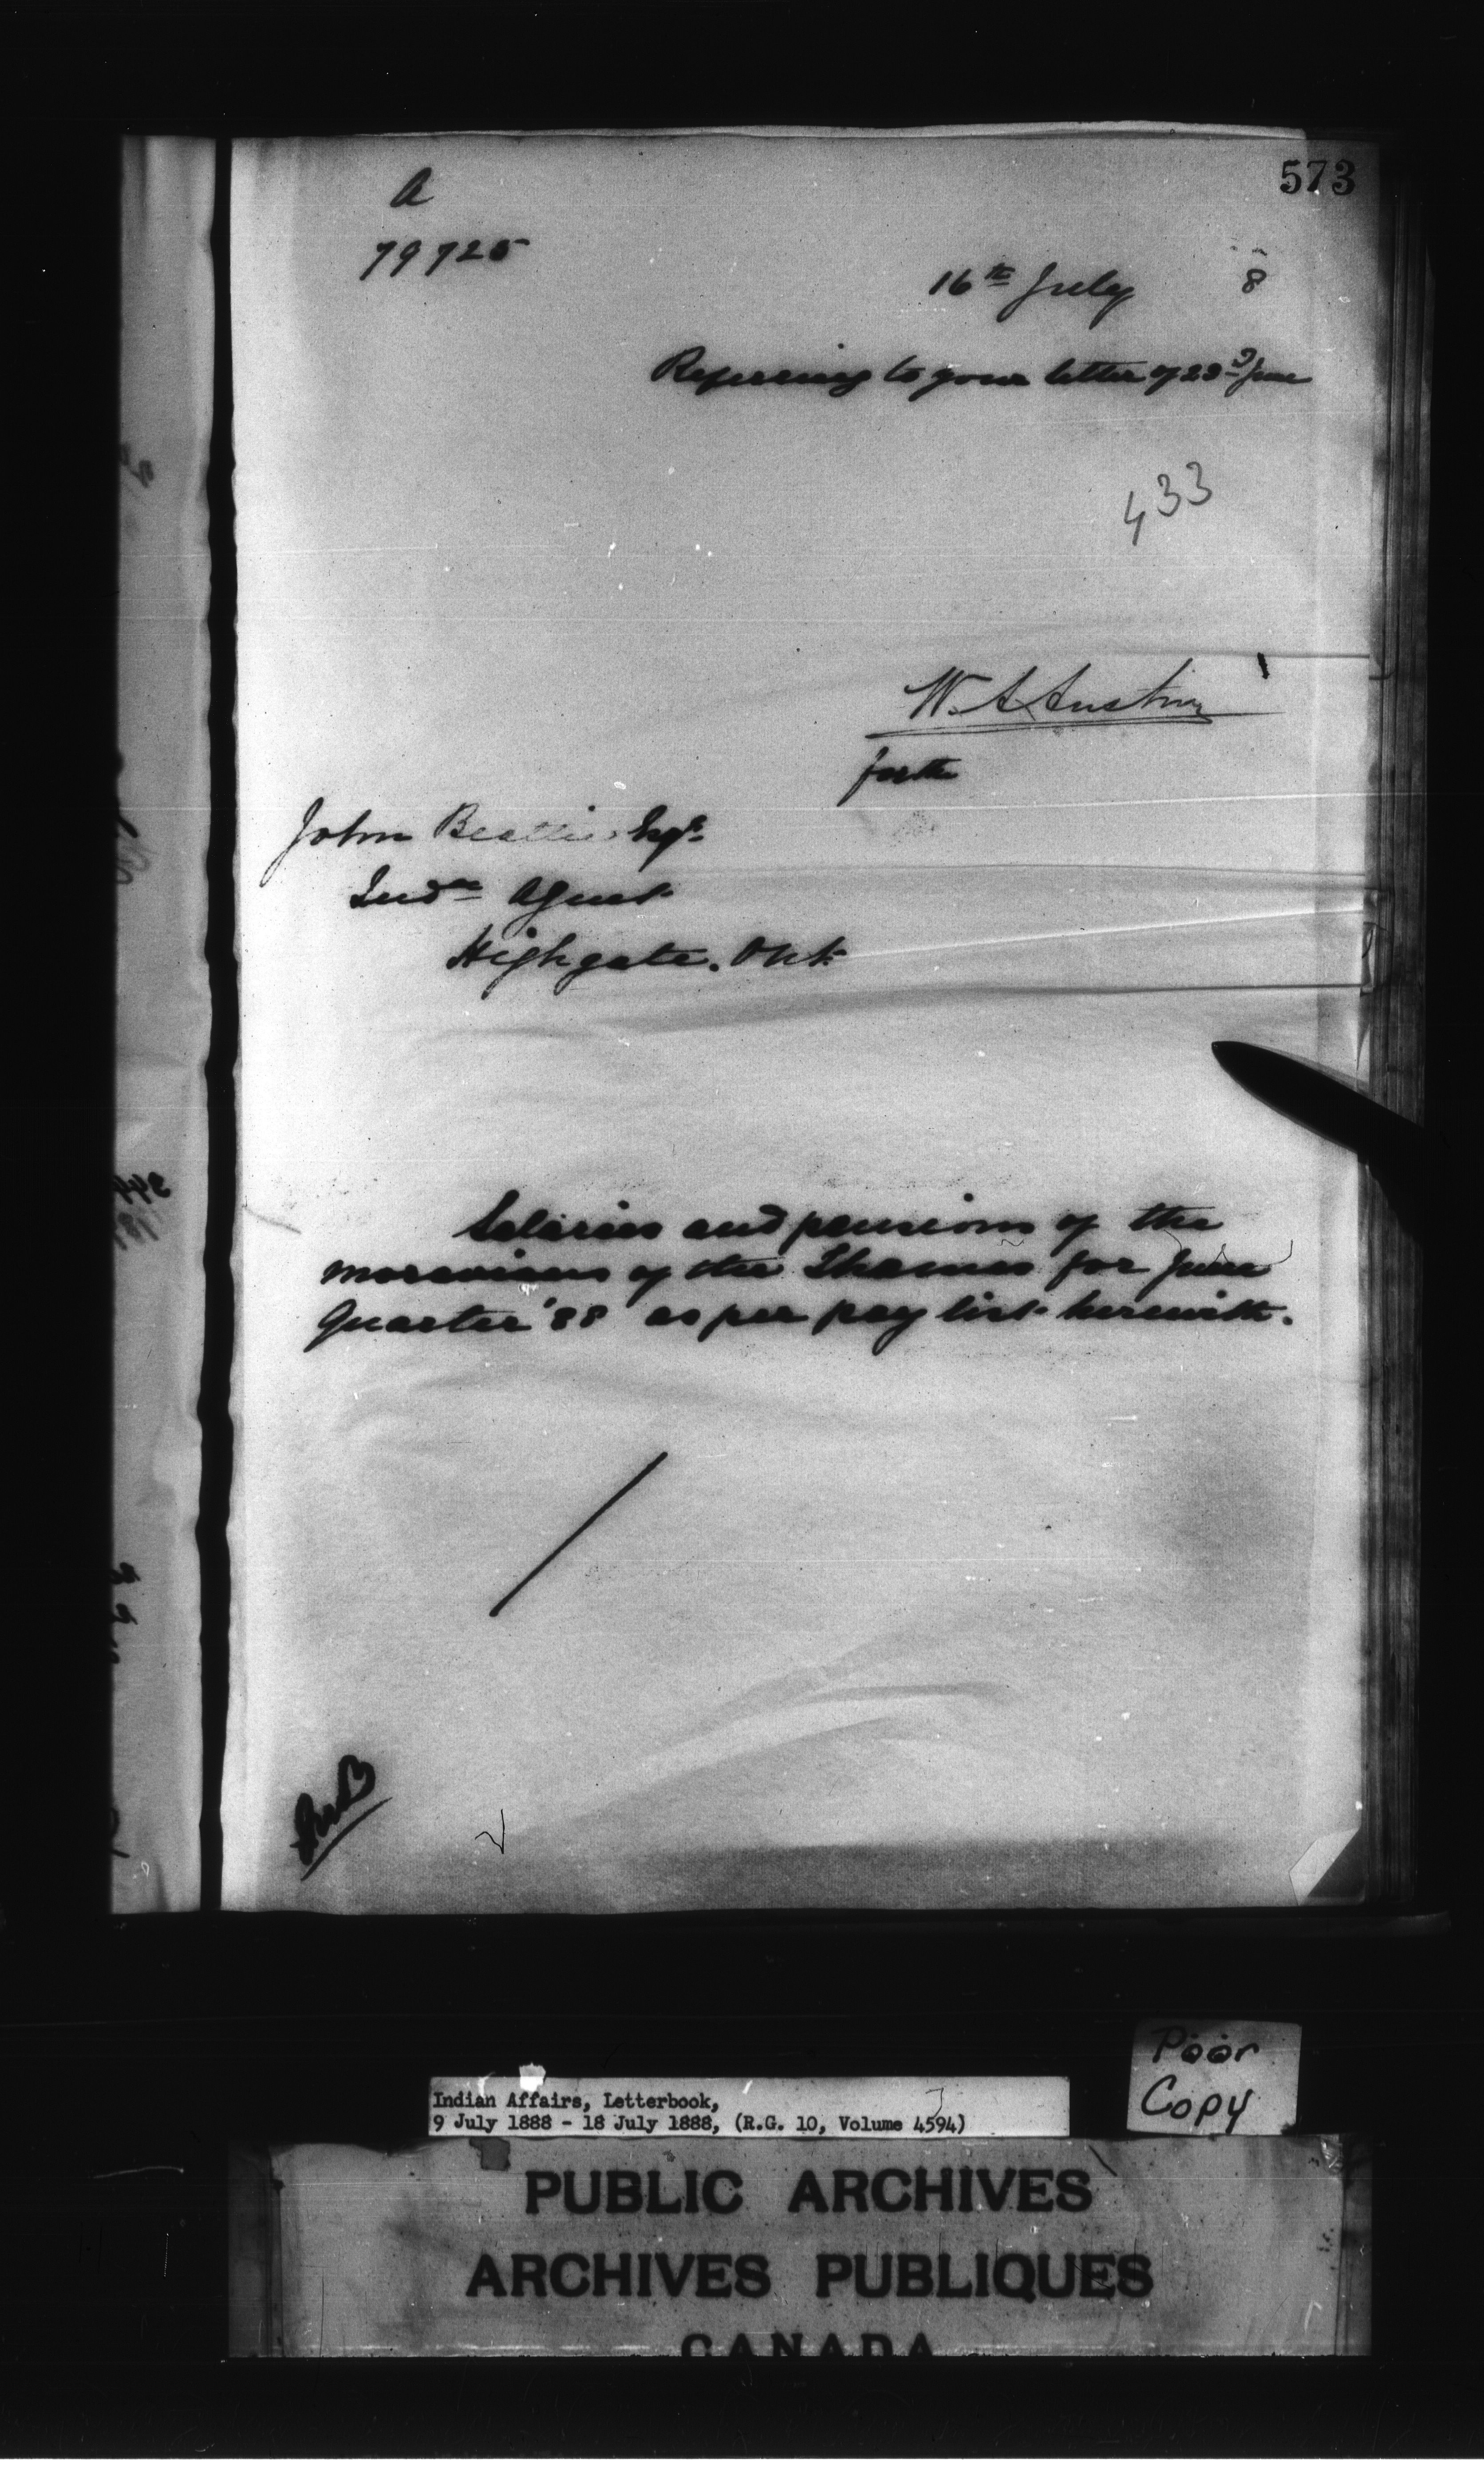 573
A
79725
16th July 8
Referring to your letter of 23d June
433
W. A Austin
for the
John Beattie Esqr
Indn Agent
Highgate. Ont
Salaries and pensions of the
moravians of the Thames for June
Quarter '88 as per pay list herewith.
Poor
Copy
Indian Affairs, Letterbook,
9 July 1888 - 18 July 1888, (R.G. 10, Volume 4594)
PUBLIC ARCHIVES
ARCHIVES PUBLIQUES
CANADA